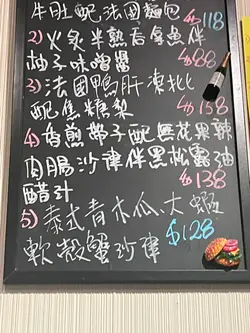 牛肚配法國麵包 $118
2) 火炙半熟吞拿魚伴
柚子味噌醬 $88
3) 法國鴨肝凍批
配焦糖梨 $158
4) 香煎帶子配無花果辣
肉腸沙律伴黑松露油
醋汁 $138
5) 泰式青木瓜、大蝦
軟殼蟹沙律 $128